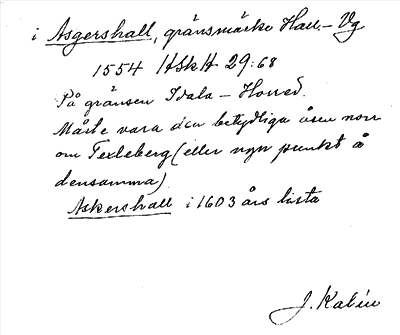 i Asgershall, gränsmärke Hall.-Vg
1554 HSkH 29:68
På gränsen Idala - Horred.
Måste vara den betydliga åsen norr
om Texleberg (eller ngn punkt å
densamma)
Askershall i 1603 års lista
J. Kalén